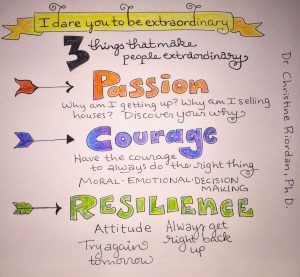 I dare you to be extraordinary
3 things that make
people extraordinary
Passion
Why am I getting up? Why am I selling
houses? Discover your why
Courage
Have the courage
to always do the right thing
MORAL-EMOTIONAL-DECISION
MAKING
RESILIENCE
Attitude
Try again
tomorrow
Always get
right back
up
Dr. Christine Riordan, Ph.D.